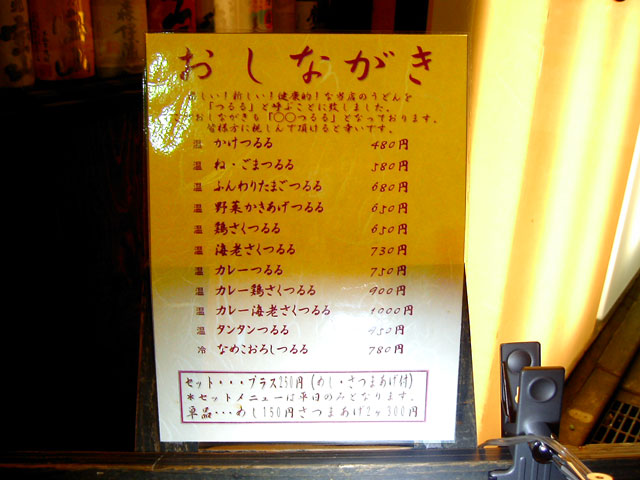 おしながき
しい!新しい!健康的!な当店のうどんを
「つるる」と呼ぶことに致しました。
おしながきも「〇〇つるる」となっております。
皆様方に親しんで頂けると幸いです。
温 かけつるる 480円
温 ね・ごまつるる 580円
温 ふんわりたまごつるる 680円
温 野菜かきあげつるる 650円
温 鶏さくつるる 650円
温 海老さくつるる 730円
温 カレーつるる 750円
温 カレー鶏さくつるる 900円
温 カレー海老さくつるる 1000円
温 タンタンつるる 950円
冷 なめこおろしつるる 780円
セット・・・プラス250円(めし・さつまあげ付)
*セットメニューは平日のみとなります。
単品・・・めし150円さつまあげ2ヶ300円